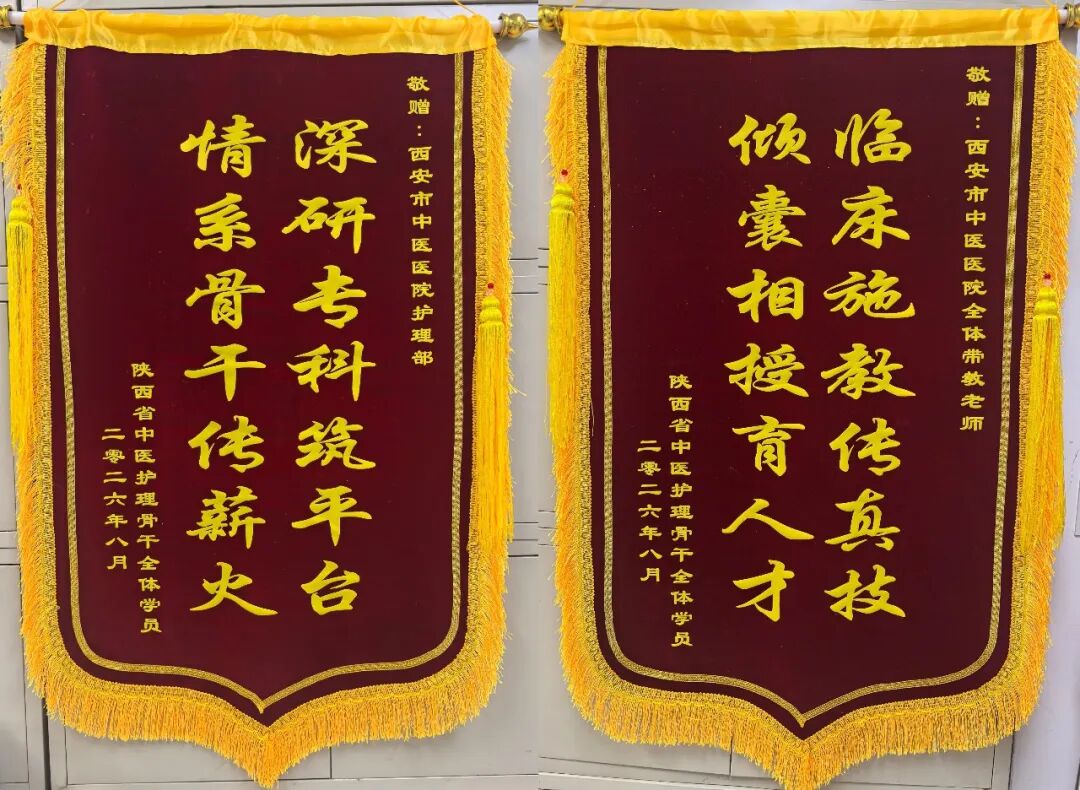 敬赠：西安市中医医院护理部
深研专科筑平台
情系骨干传薪火
陕西省中医护理骨干全体学员
二零二六年八月
敬赠：西安市中医医院全体带教老师
临床施教传真技
倾囊相授育人才
陕西省中医护理骨干全体学员
二零二六年八月